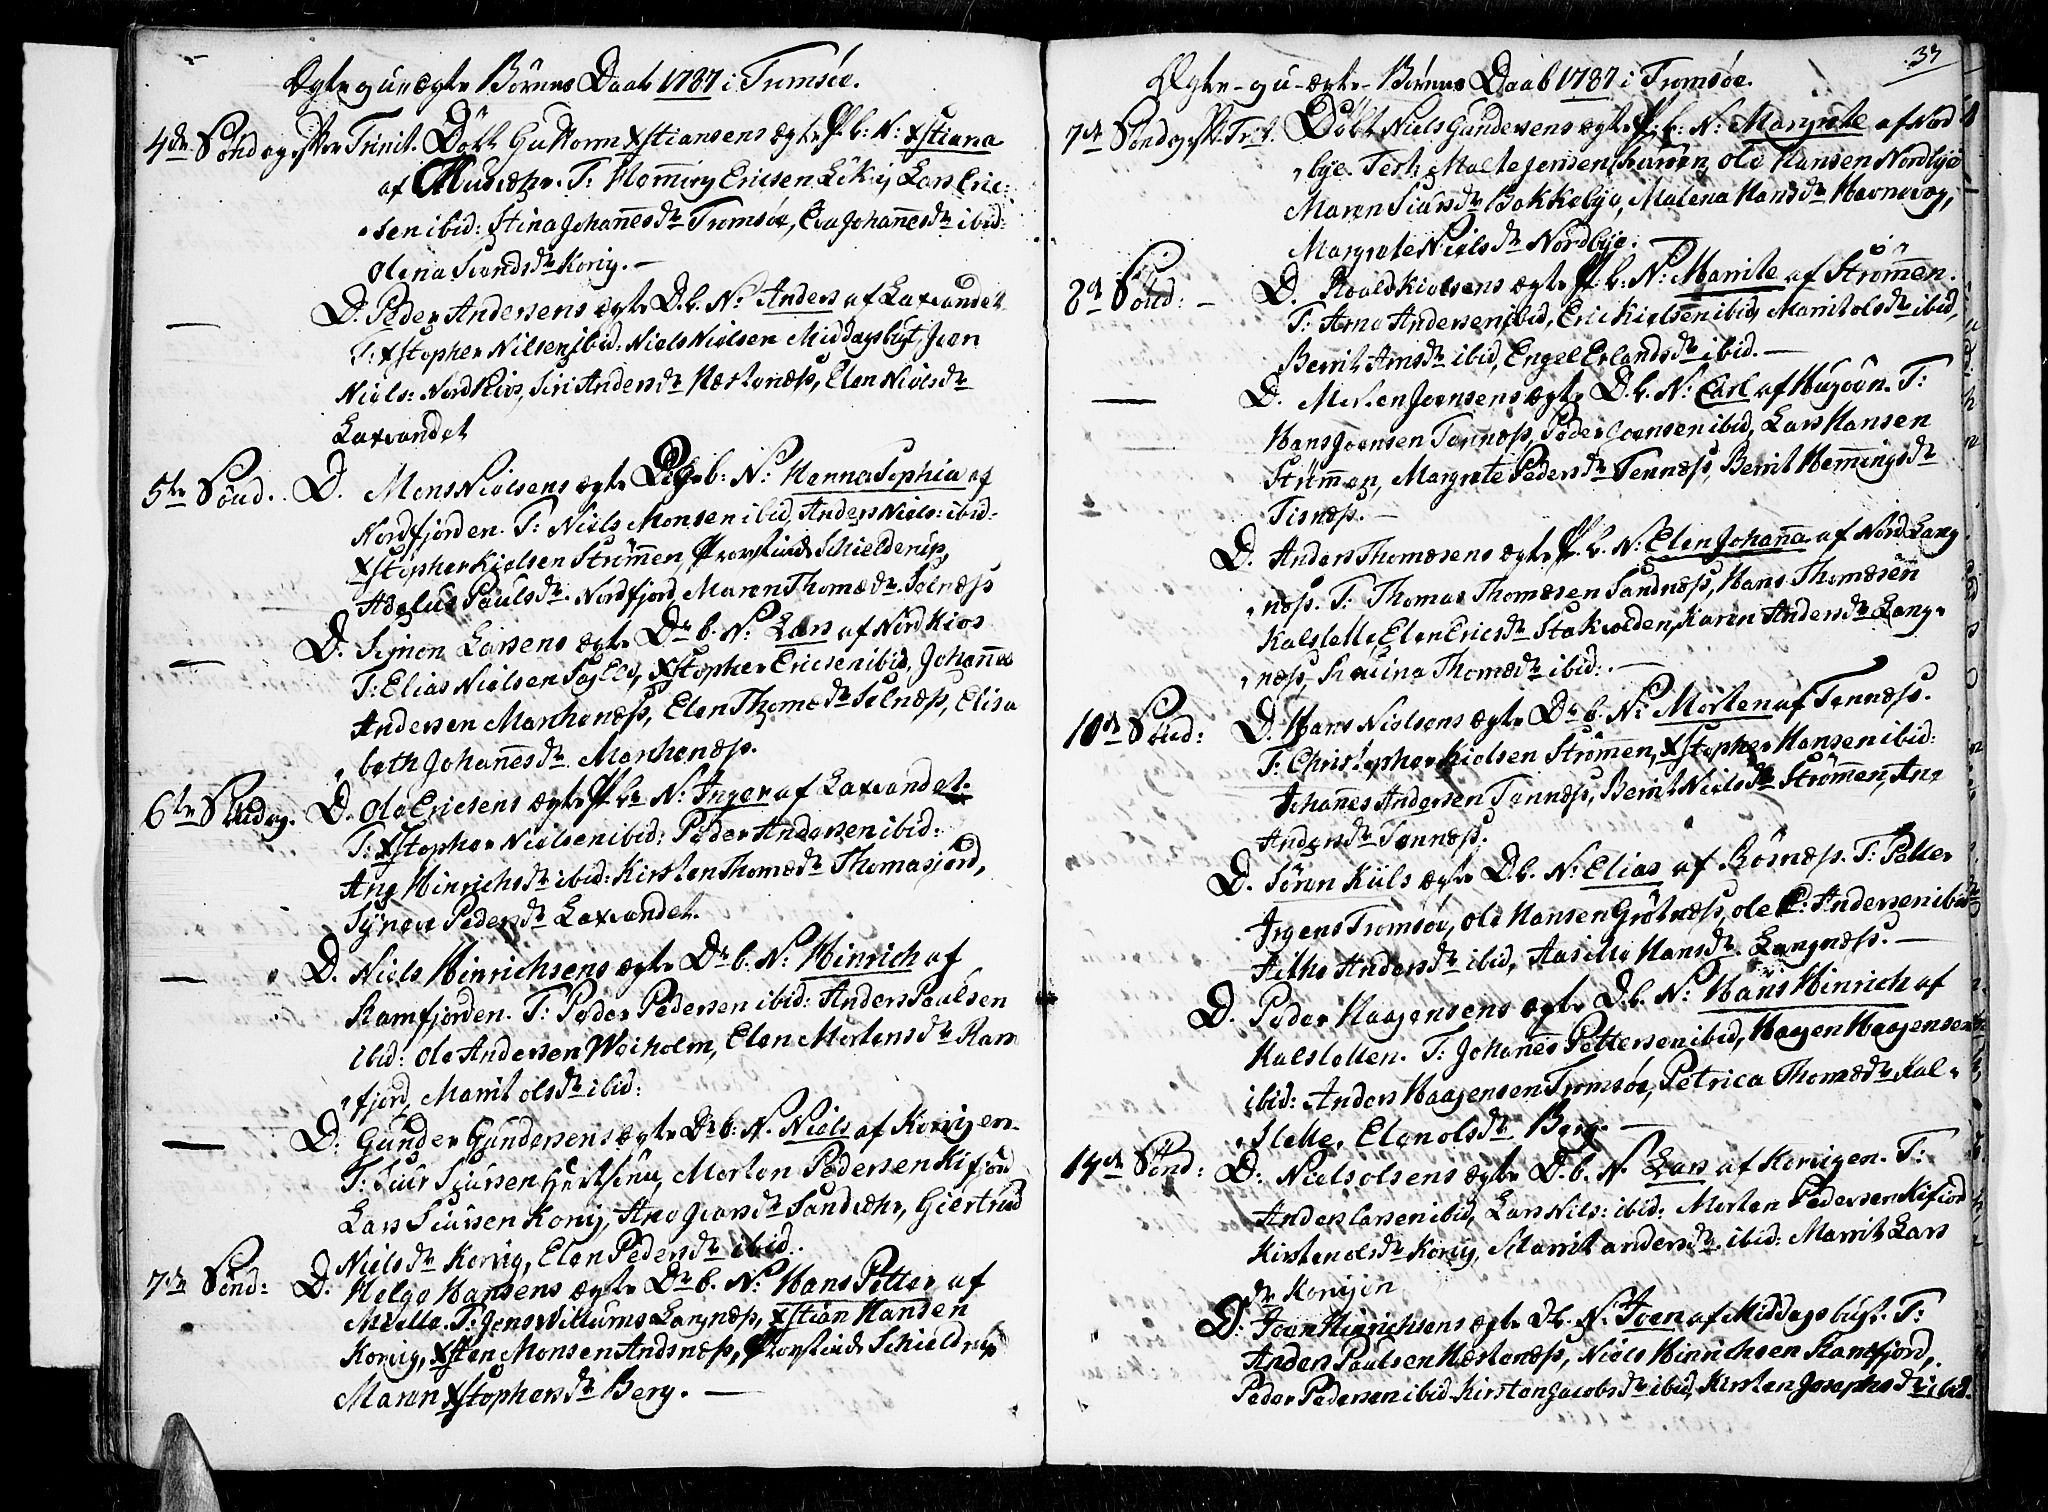 Ægte og u-ægte Børnes Daab 1787 i Tromsöe.
4de Söndag efter Trinit. Döbt Guttorm Xstiansens ægte P. b: N: Xstiana
af T: Hemming Ericsen Lars Eric-
sen ibid: Stina Johanesdr Tromsöe, Eva Johanesdr ibid:
Olena Korig. —
— D. Peder Andersens ægte D. b. N: Anders af Laxvandet
T: Xstopher Nilsen ibid: Niels Nielsen Middagsbugt, Joen
Niels: NordKios, Siri Andersdr Hestenæss, Elen Nielsdr
Laxvandet
5te Sönd. D. Mons Nielsens ægte Pige b: N: Hanna Sophia af
Nordfjorden. T: Niels Monsen ibid, Anders Niels: ibid.
Xstopher Kielsen Strömmen, Provstinde Schielderup,
Adelus Paulsdr. Nordfjord, Maren Thomædr. Selnæss
— D. Simon Larsens ægte Dr. b. N: Lars af NordKios
T: Elias Nielsen SagElv, Xstopher Ericsen ibid, Johannes
Andersen Marhenæss, Elen Thomædr Selnæss, Elisa
beth Johanesdr. Marhenæss.
6te Söndag. D. Ole Ericsens ægte P. b. N: Inger af Laxvandet.
T: Xstopher Nielsen ibid: Peder Andersen ibid:
Ane Hinrichsdr ibid: Kirsten Thomædr Thomasjord,
Synove Pedersdr Laxvandet.
— D. Niels Hinrichsens ægte Dr. b. N: Hinrich af
Ramfjorden. T: Peder Pedersen ibid: Anders Paulsen
ibid: Ole Andersen Weiholm, Elen Mortensdr Ram
fjord, Marrit Olsdr ibid:
— D. Gunder Gundersens ægte Dr b: N. Niels af Korigen.
T: Siur Siursen Morten Pedersen Kifjord
Lars Siursen Korig, Ane Joensdr Giertrud
Nielsdr Korig, Elen Pedersdr ibid.
7de Sönd: D. Helge Hansens ægte Dr b. N: Hans Petter af
T: Jens Willums Langnæss, Xstian Hansen
Korig, Xsten Monsen Andsnæss, Provstinde Schieldrup
Maren Xstophersdr Berg. —
37
Ægte- og u-ægte- Börnes Daab 1787 i Tromsöe.
7de Söndag eft. Trit. Döbt Niels Gundersens ægte P. b: N: Margrete af Nord
bye. Test: Malte Jensen Ole Hansen Nordbye
Maren Siursdr Bakkebye, Malena Hansdr Havnevog,
Margrete Nielsdr Nordbye.
8de Sönd: — D. Roald Kielsens ægte P. b: N: Marrite af Strömmen.
T: Arne Andersen ibid, Eric Kielsen ibid, Marrit olsdr ibid,
Berrit Arnsdr ibid, Engel Erlandsdr ibid. —
— D. Morten Joensens ægte D. b. N: Carl af T:
Hans Joensen Tennæss, Peder Joensen ibid, Lars Hansen
Strömmen, Margrete Pedersdr Tennæss, Berrit Hemmingsdr
Tisnæss. —
D. Anders Thomæsens ægte P. b. N: Elen Johana af Nord Lang
næss. T: Thomas Thomæsen Sandnæss, Hans Thomæsen
Kalslette, Elen Ericsdr Stakvolden, Karen Andersdr Lang-
næss, Thomædr ibid: —
10de Sönd: D. Hans Nielsens ægte Dr b. N: Morten af Tennæss.
T: Christopher Kielsen Strömmen, Xstopher Hansen ibid:
Johannes Andersen Tennæss, Berit Nielsdr Strömmen, Ane
Andersdr Tennæss.
D. Sören Kiils ægte D. b. N: Elias af Rösnæss. T: Petter
Jrgens Tromsöe, Ole Hansen Grötnæss, Ole P: Andersen ibid
Andersdr ibid, Aasille Hansdr. Langnæss. —
D. Peder Haagensens ægte D. b. N: Hans Hinrich af
Kalsletten. T: Johanes Pettersen ibid, Haagen Haagensen
ibid: Anders Haagensen Tromsöe, Petrica Thomædr Kal-
slette, Elen olsdr Berg. —
14de Sönd: D. Niels olsens ægte D. b. N. Lars af Korigen. T:
Anders Larsen ibid, Lars Nils: ibid: Morten Pedersen Kifjord
Kirsten olsdr Korig, Marrit andersdr. ibid: Marrit Lars
dr Korigen
D. Joen Hinrichsens ægte D. b. N. Joen af Middagsbugt. T:
Anders Paulsen Hestenæss, Niels Hinrichsen Ramfjord,
Peder Pedersen ibid. Kirsten Jacobsdr ibid, Kirsten Josephsdr ibid.